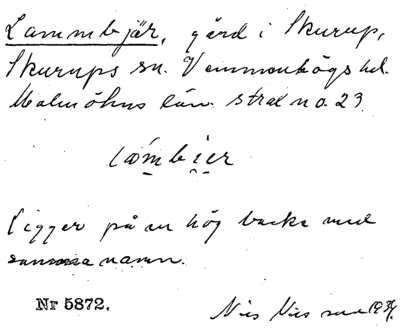 Lammbjär, gård i Skurup,
Skurups sn. Vemmenhögs hd.
Malmöhus län. strax n o. 23.
lámbier
Ligger på en hög backe med
samma namn.
Nr 5872.
Nils Nilsson